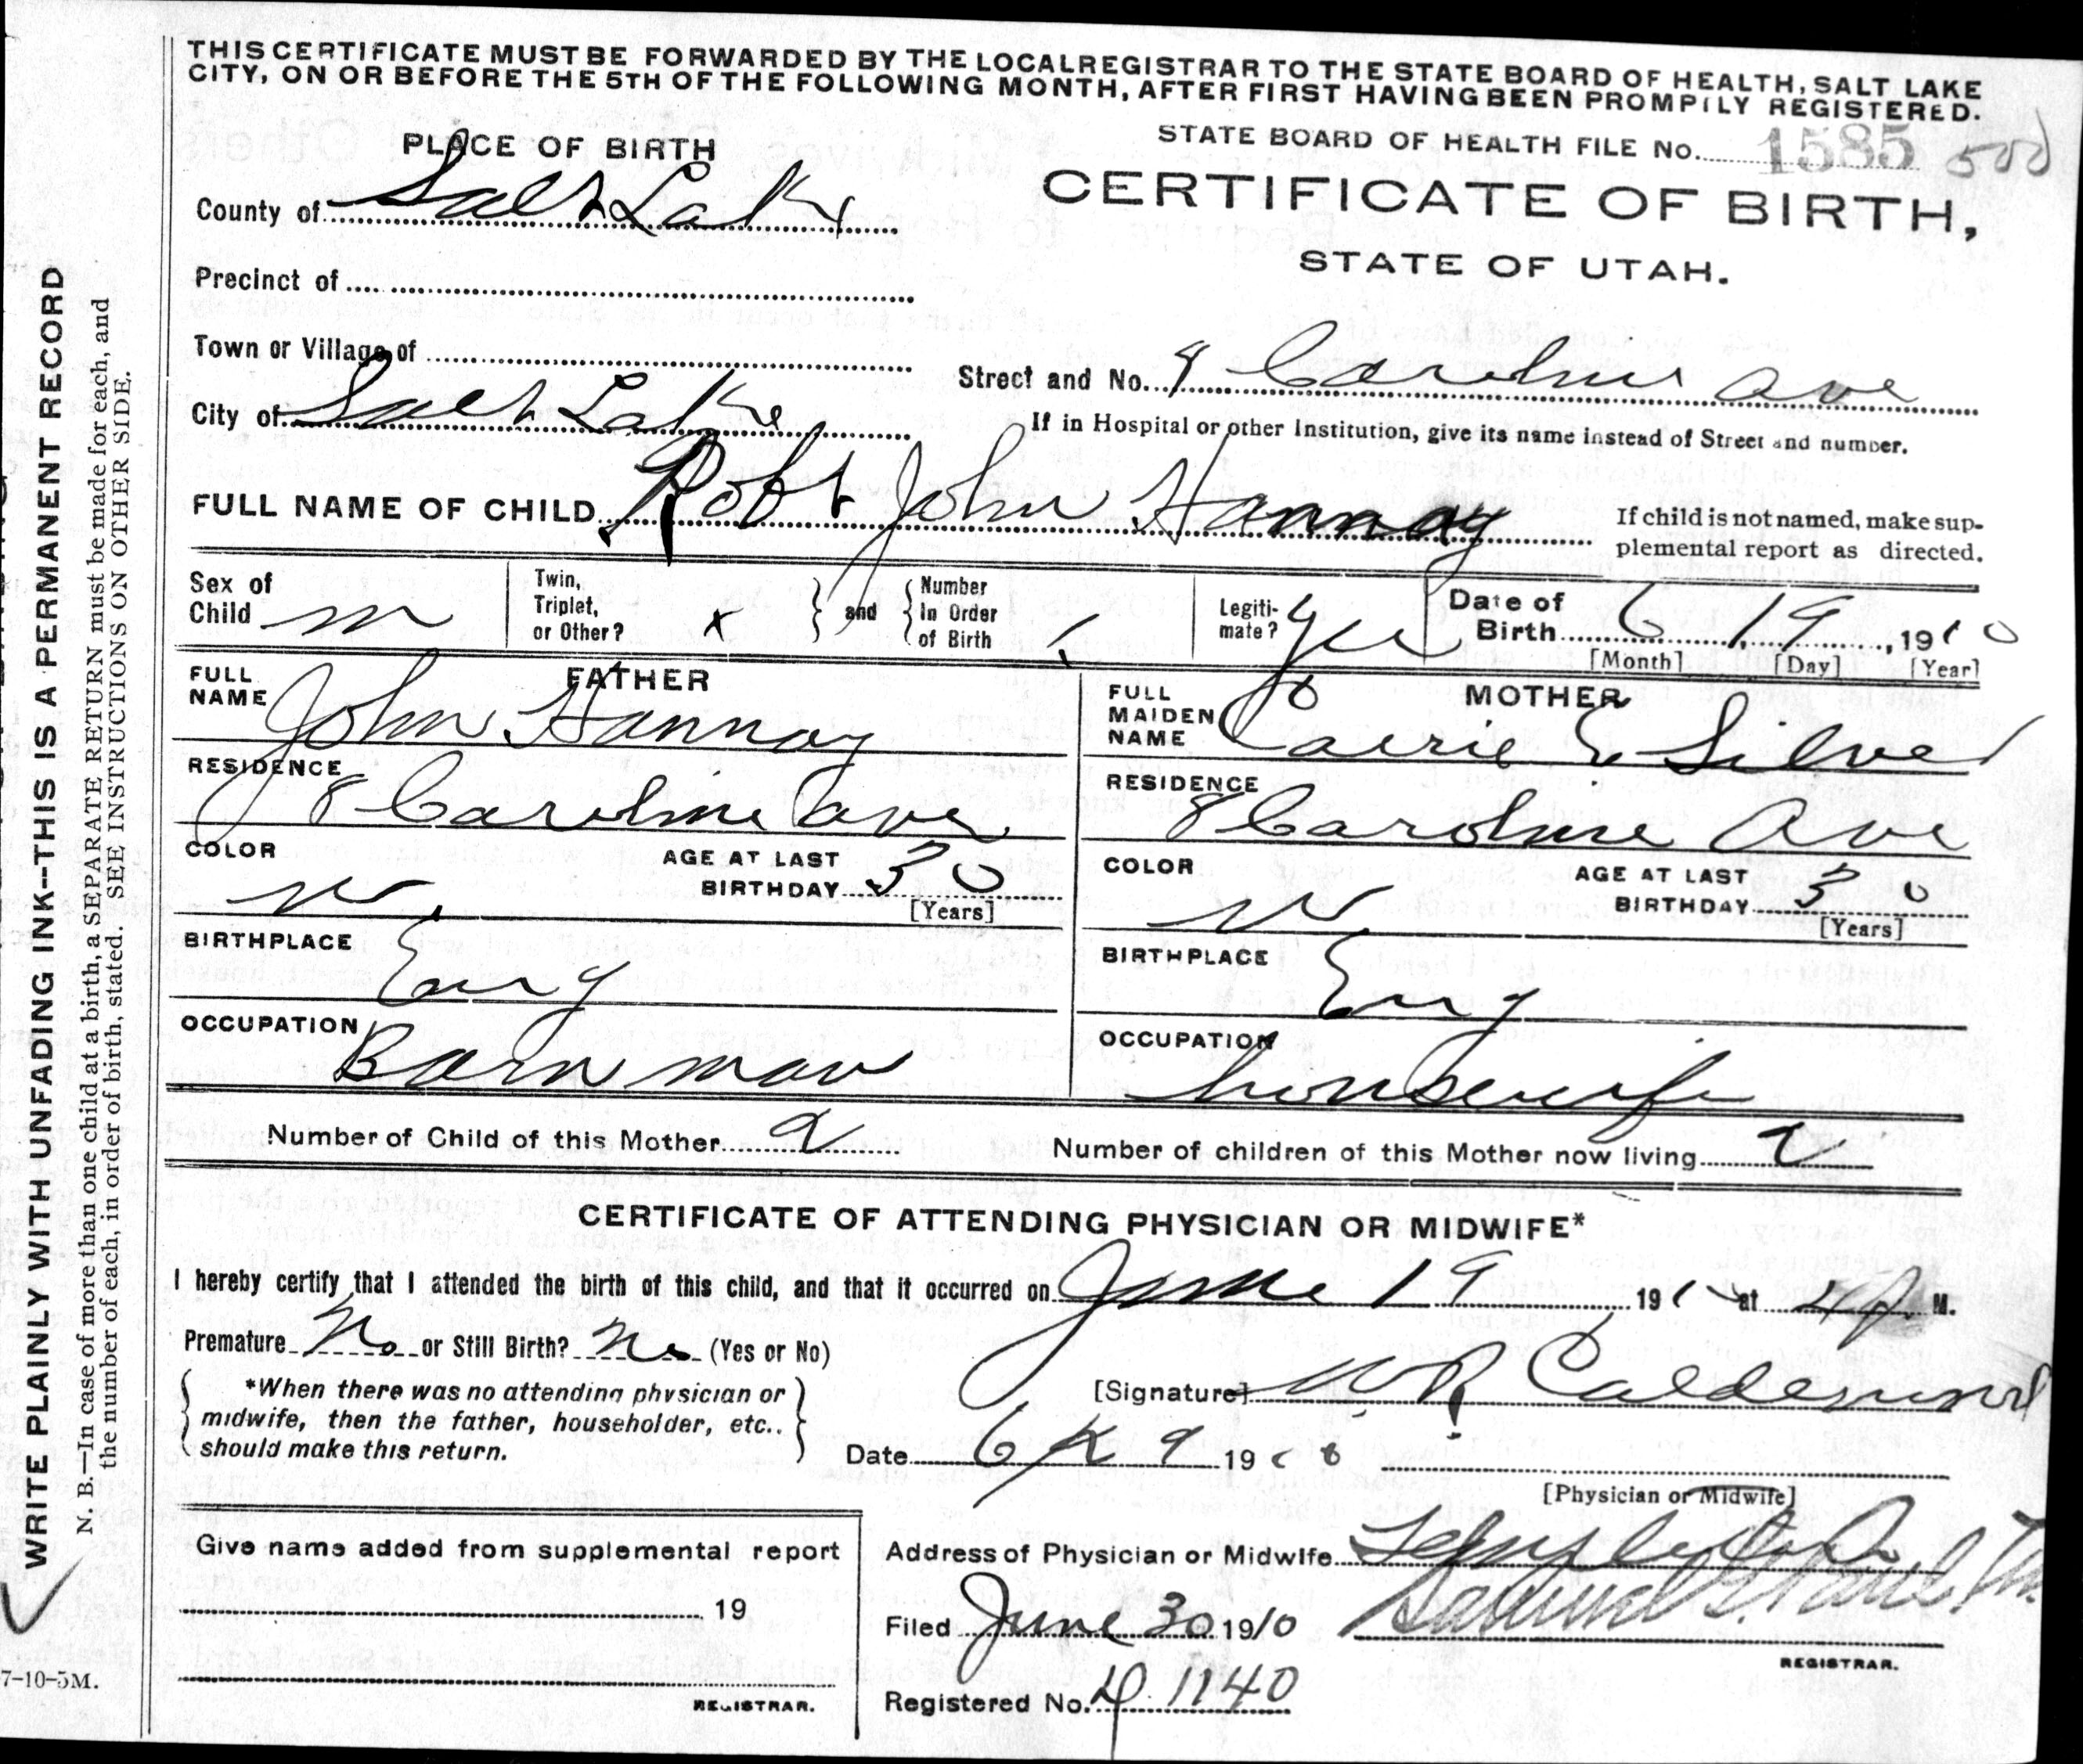 THIS CERTIFICATE MUST BE FORWARDED BY THE LOCAL REGISTRAR TO THE STATE BOARD OF HEALTH, SALT LAKE
CITY, ON OR BEFORE THE 5TH OF THE FOLLOWING MONTH, AFTER FIRST HAVING BEEN PROMPTLY REGISTERED.
PLACE OF BIRTH
STATE BOARD OF HEALTH FILE No. 1585 500
County of Salt Lake
CERTIFICATE OF BIRTH,
STATE OF UTAH.
Precinct of
Town or Village of
Street and No. 8 Caroline Ave
City of Salt Lake
If in Hospital or other Institution, give its name instead of Street and number.
FULL NAME OF CHILD Robt John Hannay
If child is not named, make sup-
plemental report as directed.
Sex of
Child m
Twin,
Triplet,
or Other? x
and
Number
In Order
of Birth
Legiti-
mate? yes
Date of
Birth 6 19, 1910
[Month] [Day] [Year]
FATHER
FULL
NAME John Hannay
RESIDENCE
8 Caroline ave
COLOR W
AGE AT LAST
BIRTHDAY 30
[Years]
BIRTHPLACE Eng
OCCUPATION Barn man
MOTHER
FULL
MAIDEN
NAME Carrie E Silver
RESIDENCE
8 Caroline Ave
COLOR W
AGE AT LAST
BIRTHDAY 30
[Years]
BIRTHPLACE Eng
OCCUPATION housewife
Number of Child of this Mother 2
Number of children of this Mother now living 2
CERTIFICATE OF ATTENDING PHYSICIAN OR MIDWIFE*
I hereby certify that I attended the birth of this child, and that it occurred on June 19 1910 at 4 P. M.
Premature No or Still Birth? No (Yes or No)
*When there was no attending physician or
midwife, then the father, householder, etc..
should make this return.
[Signature] W R Calderwood
Date 6 9 1910
[Physician or Midwife]
Give name added from supplemental report
19
REGISTRAR.
Address of Physician or Midwife Templeton
Filed June 30 1910
REGISTRAR.
Registered No. 1140
WRITE PLAINLY WITH UNFADING INK--THIS IS A PERMANENT RECORD
N. B.—In case of more than one child at a birth, a SEPARATE RETURN must be made for each, and
the number of each, in order of birth, stated. SEE INSTRUCTIONS ON OTHER SIDE.
7-10-5M.